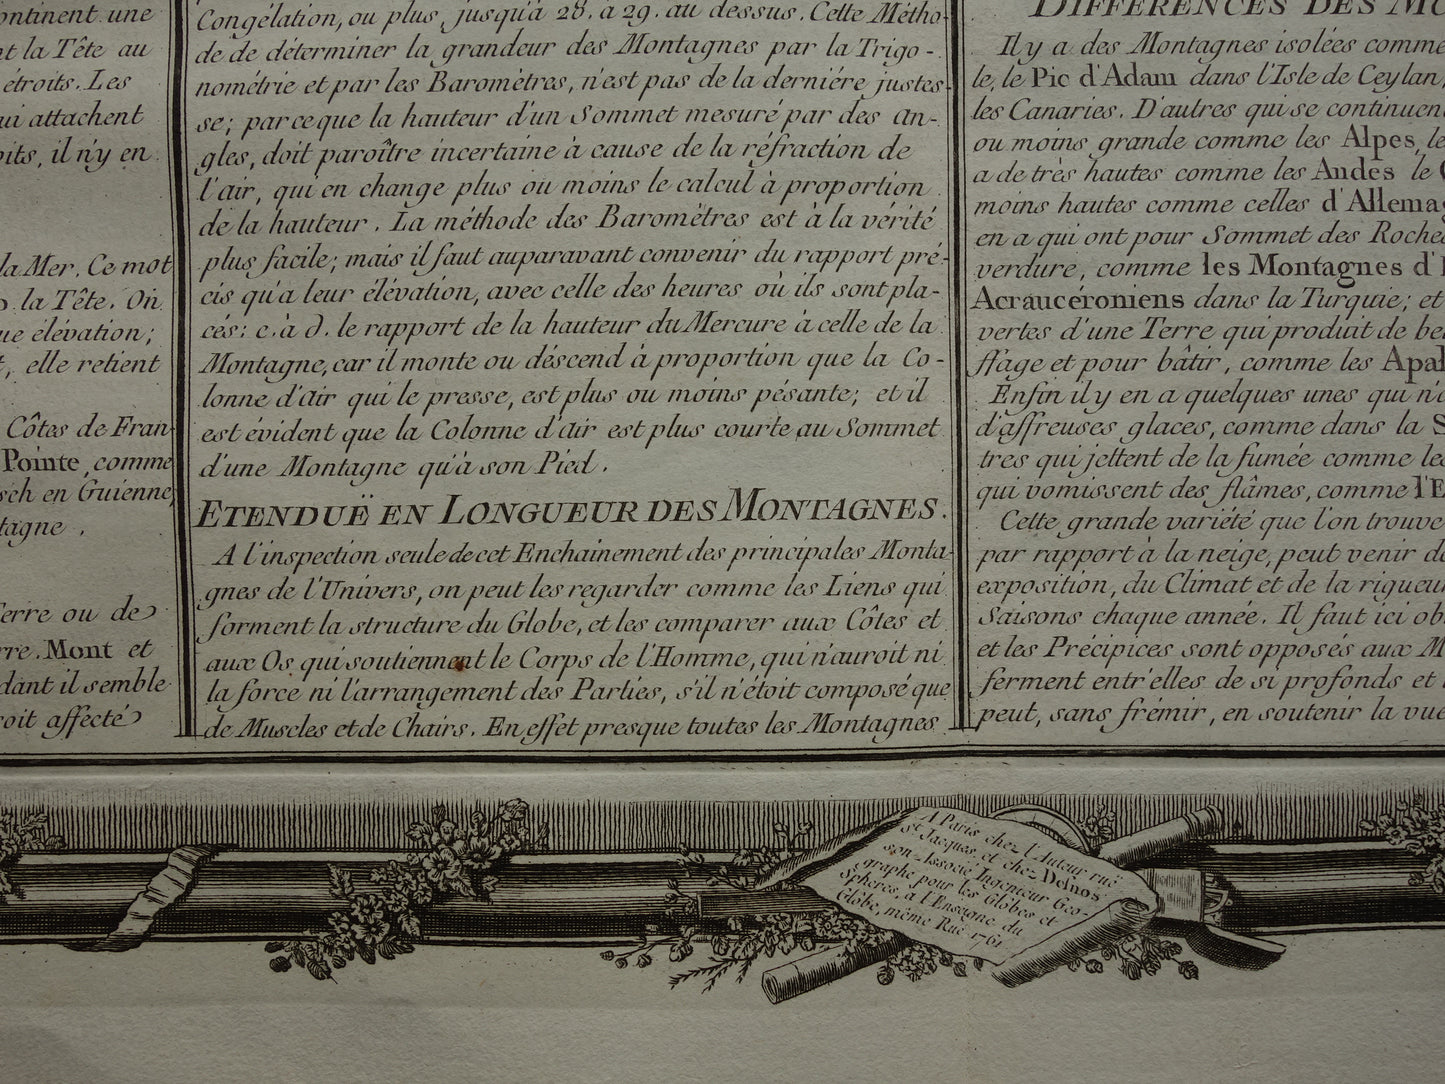 ontinent une
nt la Tête au
étroits. Les
ui attachent
oits, il n'y en
la Mer. Ce mot
la Tête. On
ue élévation;
t, elle retient
Côtes de Fran-
Pointe, comme
sch en Guienne,
tagne.
Terre ou de
rre. Mont et
dant il semble
roit affecté
Congélation, ou plus, jusqu'à 28. à 29. au dessus. Cette Métho-
de de déterminer la grandeur des Montagnes par la Trigo-
nométrie et par les Baromètres, n'est pas de la derniére justes-
se; parceque la hauteur d'un Sommet mesuré par des An-
gles, doit paroître incertaine à cause de la réfraction de
l'air, qui en change plus ou moins le calcul à proportion
de la hauteur. La méthode des Baromètres est à la vérité
plus facile; mais il faut auparavant convenir du rapport pré-
cis qu'a leur élévation, avec celle des heures où ils sont pla-
cés: c. à d. le rapport de la hauteur du Mercure à celle de la
Montagne, car il monte ou déscend à proportion que la Co-
lonne d'Air qui le presse, est plus ou moins pésante; et il
est évident que la Colonne d'Air est plus courte au Sommet
d'une Montagne qu'à son Pied.
ETENDUË EN LONGUEUR DES MONTAGNES.
A l'inspection seule de cet Enchaînement des principales Monta-
gnes de l'Univers, on peut les regarder comme les Liens qui
forment la structure du Globe, et les comparer aux Côtes et
aux Os qui soutiennent le Corps de l'Homme, qui n'auroit ni
la force ni l'arrangement des Parties, s'il n'étoit composé que
de Muscles et de Chairs. En effet presque toutes les Montagnes
DIFFÉRENCES DES MO
Il y a des Montagnes isolées comme
le, le Pic d'Adam dans l'Isle de Ceylan,
les Canaries. D'autres qui se continuen
ou moins grande comme les Alpes, le
a de très hautes comme les Andes le
moins hautes comme celles d'Allema
en a qui ont pour Sommet des Roche
verdure, comme les Montagnes d'
Acraucéroniens dans la Turquie; et
vertes d'une Terre qui produit de be
ffage et pour bâtir, comme les Apal
Enfin il y en a quelques unes qui n'
d'affreuses glaces, comme dans la S
tres qui jettent de la fumée comme le
qui vomissent des flâmes, comme l'E
Cette grande variété que l'on trouve
par rapport à la neige, peut venir d
exposition, du Climat et de la rigueu
Saisons chaque année. Il faut ici ob
et les Précipices sont opposés aux M
ferment entr'elles de si profonds et
peut, sans frémir, en soutenir la vue
A Paris chez l'Auteur ruë
St. Jacques, et chez Desnos
son Associé Ingenieur Geo-
graphe pour les Globes et
Spheres, à l'Enseigne du
Globe, même Ruë 1761